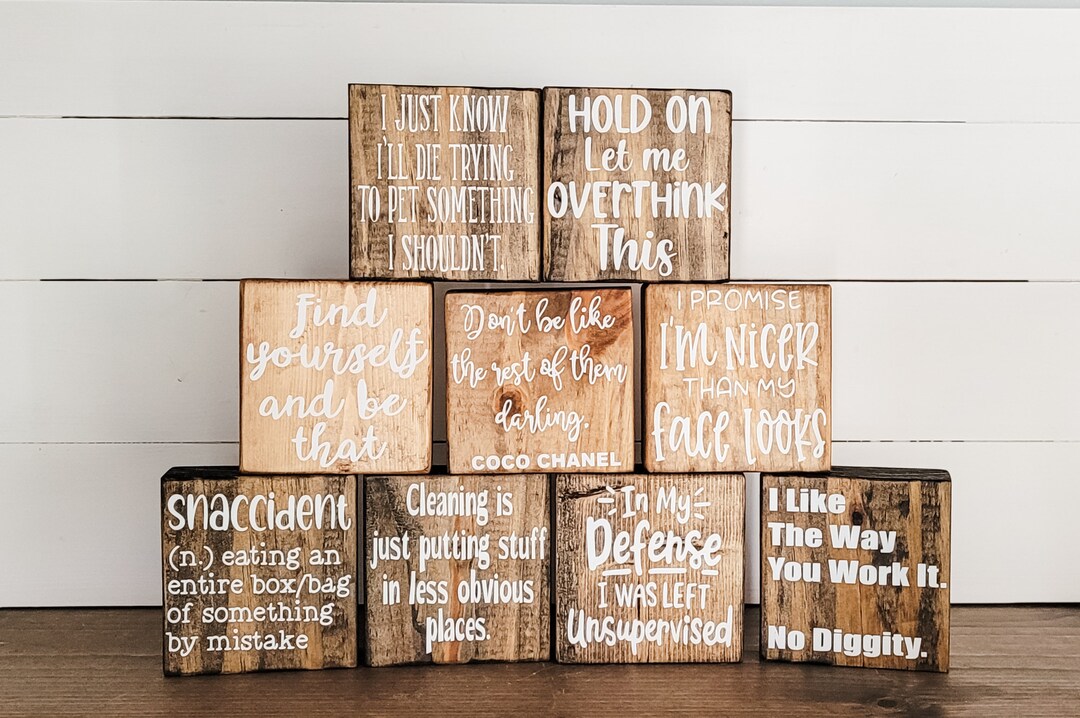 I JUST KNOW
I'LL DIE TRYING
TO PET SOMETHING
I SHOULDN'T.
HOLD ON
Let me
OVERTHINK
This
find
yourself
and be
that
Don't be like
the rest of them
darling.
COCO CHANEL
I PROMISE
I'M NICER
THAN MY
face looks
snaccident
(n.) eating an
entire box/bag
of something
by mistake
Cleaning is
just putting stuff
in less obvious
places.
In My
Defense
I WAS LEFT
Unsupervised
I Like
The Way
You Work It.
No Diggity.